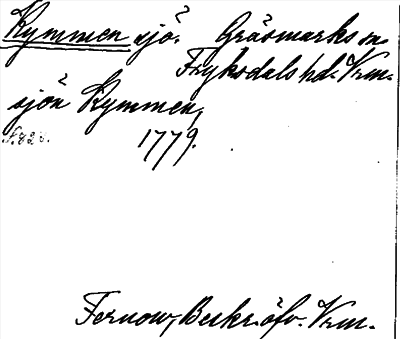 Kymmen sjö. Gräsmarks sn
Fryksdals hd. Vrm.
sjön Kymmen,
1779.
Fernow, Beskr. öfv. Vrm.